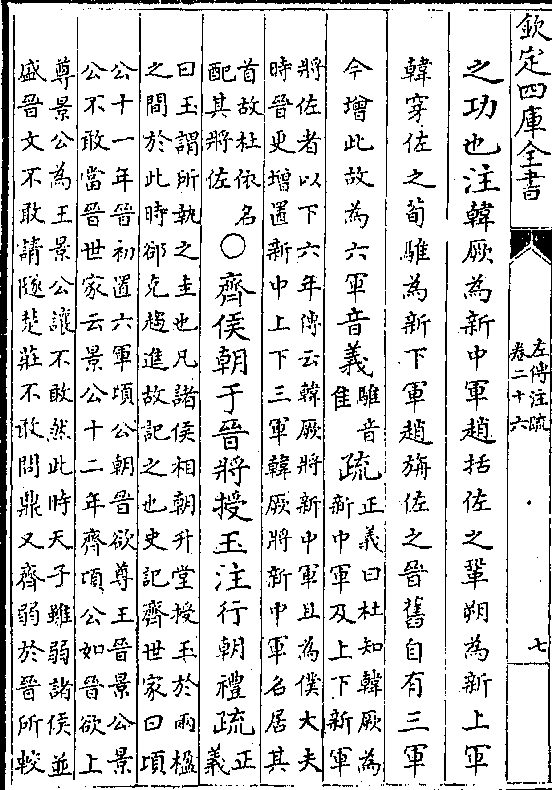 欽定四庫全書
左傳注疏
卷二十六
七
之功也注韓厥為新中軍趙括佐之鞏朔為新上軍
韓穿佐之荀騅為新下軍趙旃佐之晉舊自有三軍
今增此故為六軍音義
騅音
隹
疏
正義曰杜知韓厥為
新中軍及上下新軍
將佐者以下六年傳云韓厥將新中軍且為僕大夫
時晉更增置新中上下三軍韓厥將新中軍名居其
首故杜依名
配其將佐
○齊侯朝于晉將授玉注行朝禮疏
正
義
曰玉謂所執之圭也凡諸侯相朝升堂授玉於兩楹
之間於此時郤克趨進故記之也史記齊世家曰頃
公十一年晉初置六軍頃公朝晉欲尊王晉景公景
公不敢當晉世家云景公十二年齊頃公如晉欲上
尊景公為王景公讓不敢然此時天子雖弱諸侯並
盛晉文不敢請隧楚莊不敢問鼎又齊弱於晉所較